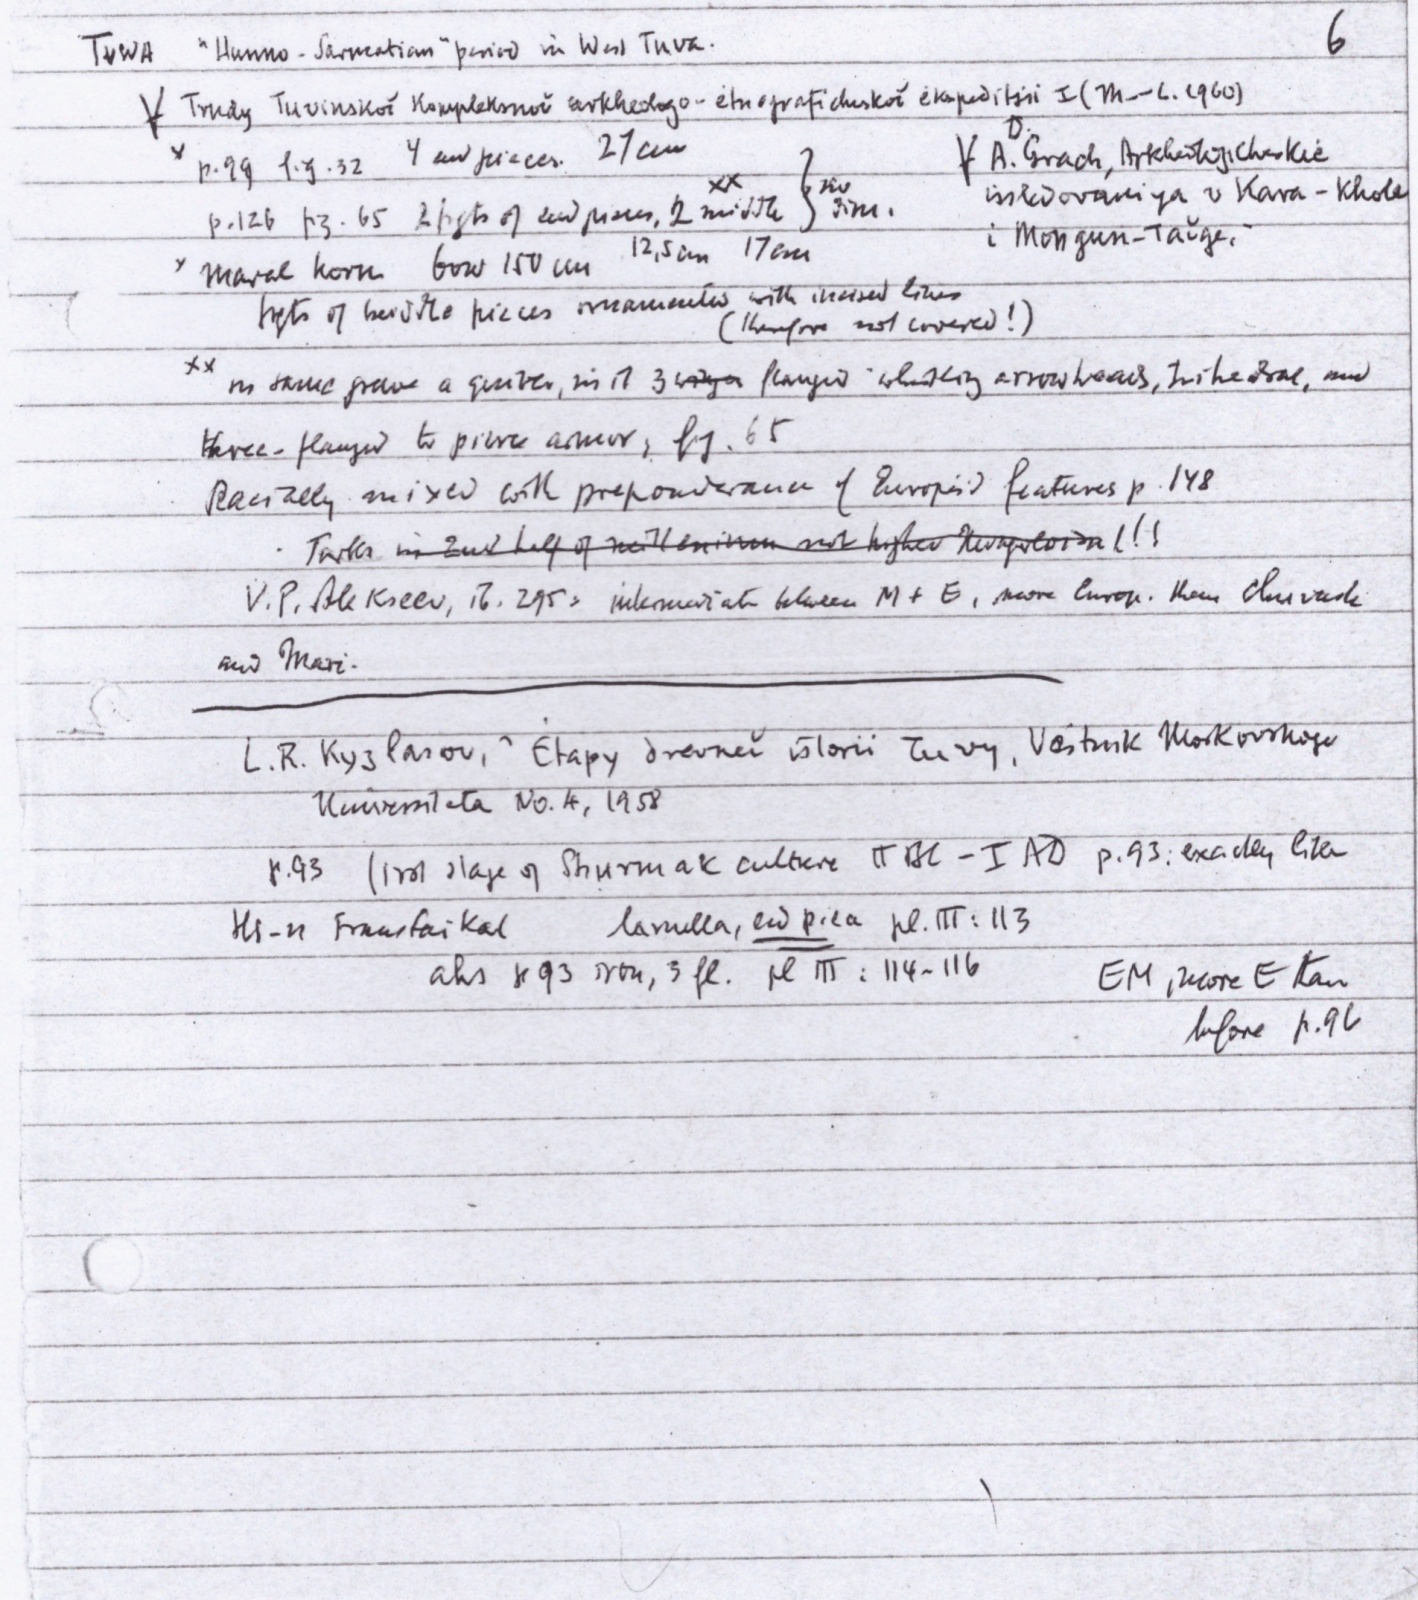 6
TUWA "Hunno-Sarmatian" period in West Tuva.
Trudy Tuvinskoĭ Kompleksnoĭ arkheologo-étnograficheskoĭ ékspeditsii I (M.-L. 1960)
x p.99 fig. 32 4 end pieces. 27 cm
A. D. Grach, Arkheologicheskie
issledovaniya v Kara-Khole
i Mongun-Taĭge.
p.126 fig. 65 2 fgts of end pieces, 2 middle xx } no dim.
12,5 cm 17 cm
x Maral horn bow 150 cm
fgts of middle pieces ornamented with incised lines
(therefore not covered!)
xx in same grave a quiver, in it 3 flanged whistling arrowheads, trihedral, and
three-flanged to pierce armor, fig. 65
Racially mixed with preponderance of Europoid features p. 148
Turks in 2nd half of millenium not higher Mongoloid (!!
V.P. Alekseev, ib. 295: intermediate between M + E, more Europ. than Chuvash
and Mari.
L.R. Kyzlasov, Étapy drevneĭ istorii Tuvy, Vestnik Moskovskogo
Universiteta No. 4, 1958
p.93 (first stage of Shurmak culture II BC - I AD p.93: exactly like
Hs-n Transbaikal lamella, end piece pl. III: 113
ahs p 93 iron, 3 fl. pl III: 114-116
EM, more E than
before p.96